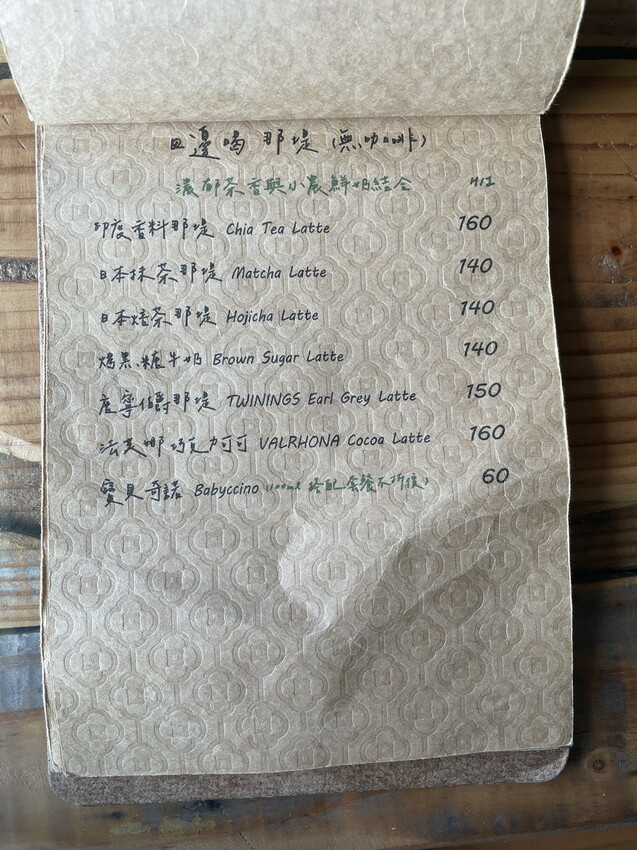 日邊喝 那堤(無咖啡)
濃郁茶香與小農鮮奶結合 H/I
印度香料那堤 Chia Tea Latte 160
日本抹茶那堤 Matcha Latte 140
日本焙茶那堤 Hojicha Latte 140
燒黑糖牛奶 Brown Sugar Latte 140
唐寧伯爵那堤 TWININGS Earl Grey Latte 150
法芙娜巧克力可可 VALRHONA Cocoa Latte 160
寶貝奇諾 Babyccino (100ml 搭配套餐不折價) 60